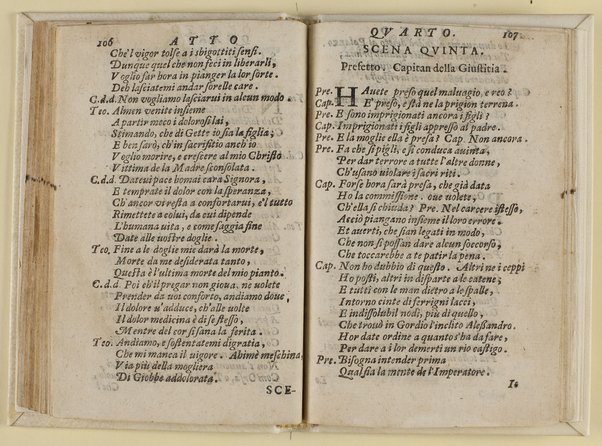 106 ATTO
Che'l vigor tolse a i sbigottiti sensi.
Dunque quel che non feci in liberarli,
Voglio far hora in pianger la lor sorte.
Deh lasciatemi andar sorelle care.
C.d.d. Non vogliamo lasciarui in alcun modo.
Teo. Almen venite insieme
A partir meco i dolorosi lai,
Stimando, che di Gette io sia la figlia;
E ben sarò, ch'in sacrifitio anch'io
Voglio morire, e crescere al mio Christo
Vittima de la Madre sconsolata.
C.d.d. Dateui pace homai cara Signora,
E temprate il dolor con la speranza,
Ch'ancor vi resta a confortarui, e'l tutto
Rimettete a colui, da cui dipende
L'humana vita, e come saggia fine
Date alle vostre doglie.
Teo. Fine a le doglie mie darà la morte,
Morte da me desiderata tanto,
Questa è l'ultima morte del mio pianto.
C.d.d. Poi ch'il pregar non gioua, ne volete
Prender da voi conforto, andiamo doue
Il dolore v'adduce, ch'alle volte
Il dolor medicina è di se stesso,
Mentre del cor si sana la ferita.
Teo. Andiamo, e sostentatemi di gratia,
Che mi manca il vigore. Ahimè meschina,
Via più della mogliera
Di Giobbe addolorata.
SCE-
QVARTO. 107
SCENA QVINTA.
Prefetto, Capitan della Giustitia.
Pre. HAuete preso quel maluagio, e reo?
Cap. E' preso, e stà ne la prigion terrena.
Pre. E sono imprigionati ancora i figli?
Cap. Imprigionati i figli appresso al padre.
Pre. E la moglie ella è presa? Cap. Non ancora.
Pre. Fa che si pigli, e si conduca auinta,
Per dar terrore a tutte l'altre donne,
Ch'usano violare i sacri riti.
Cap. Forse hora sarà presa, che già data
Ho la commissione. oue volete,
Ch'ella si chiuda? Pre. Nel carcere istesso,
Acciò piangano insieme il loro errore.
Et auerti, che sian legati in modo,
Che non si possan dare alcun soccorso,
Che toccarebbe a te patir la pena.
Cap. Non ho dubbio di questo. Altri ne i ceppi
Ho posti, altri in disparte a le catene;
E tutti con le man dietro a le spalle,
Intorno cinte di ferrigni lacci,
E indissolubil nodi, più di quello,
Che trouò in Gordio l'inclito Alessandro.
Hor date ordine a quanto s'ha da fare,
Per dare a i lor demerti un rio castigo.
Pre. Bisogna intender prima
Qual sia la mente de l'Imperatore.
Io